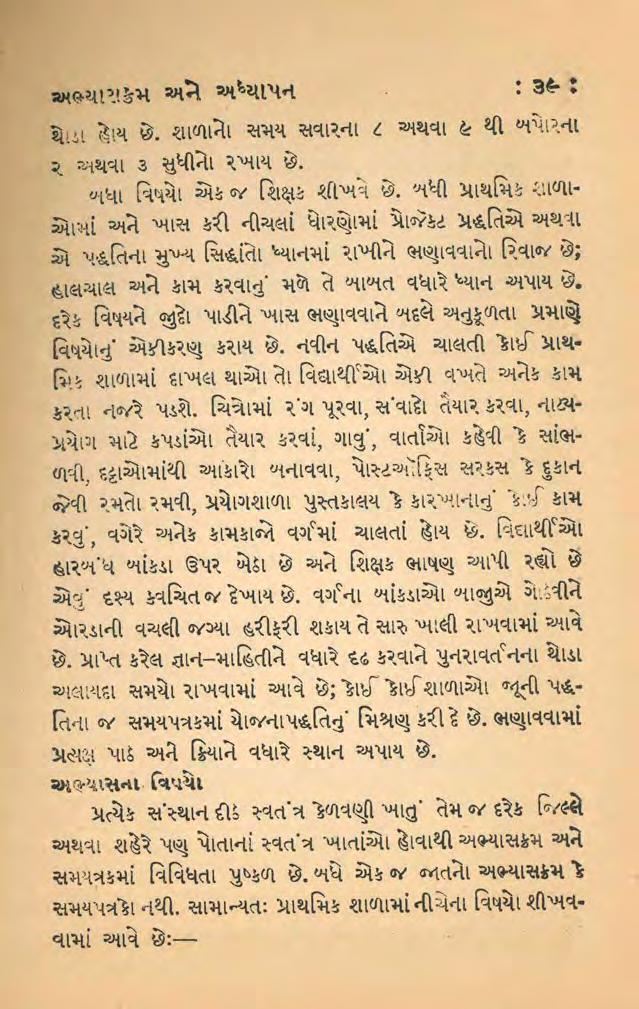 અભ્યાસક્રમ અને અધ્યાપન : ૩૯ :
થોડા હોય છે. શાળાનો સમય સવારના ૮ અથવા ૯ થી બપોરના
૨ અથવા ૩ સુધીનો રખાય છે.
બધા વિષયો એક જ શિક્ષક શીખવે છે. બધી પ્રાથમિક શાળા-
ઓમાં અને ખાસ કરી નીચલાં ધોરણોમાં પ્રોજેક્ટ પ્રદ્ધતિએ અથવા
એ પદ્ધતિના મુખ્ય સિદ્ધાંતો ધ્યાનમાં રાખીને ભણાવવાનો રિવાજ છે;
હાલચાલ અને કામ કરવાનું મળે તે બાબત વધારે ધ્યાન અપાય છે.
દરેક વિષયને જુદો પાડીને ખાસ ભણાવવાને બદલે અનુકૂળતા પ્રમાણે
વિષયોનું એકીકરણ કરાય છે. નવીન પદ્ધતિએ ચાલતી કોઈ પ્રાથ-
મિક શાળામાં દાખલ થાઓ તો વિદ્યાર્થીઓ એકી વખતે અનેક કામ
કરતા નજરે પડશે. ચિત્રોમાં રંગ પૂરવા, સંવાદો તૈયાર કરવા, નાટ્ય-
પ્રયોગ માટે કપડાંઓ તૈયાર કરવાં, ગાવું, વાર્તાઓ કહેવી કે સાંભ-
ળવી, દટ્ટાઓમાંથી આકારો બનાવવા, પોસ્ટઑફિસ સરકસ કે દુકાન
જેવી રમતો રમવી, પ્રયોગશાળા પુસ્તકાલય કે કારખાનાનું કોઈ કામ
કરવું, વગેરે અનેક કામકાજો વર્ગમાં ચાલતાં હોય છે. વિદ્યાર્થીઓ
હારબંધ બાંકડા ઉપર બેઠા છે અને શિક્ષક ભાષણ આપી રહ્યો છે
એવું દશ્ય ક્વચિત જ દેખાય છે. વર્ગના બાંકડાઓ બાજુએ ગોઠવીને
ઓરડાની વચલી જગ્યા હરીફરી શકાય તે સારુ ખાલી રાખવામાં આવે
છે. પ્રાપ્ત કરેલ જ્ઞાન–માહિતીને વધારે દઢ કરવાને પુનરાવર્તનના થોડા
અલાયદા સમયો રાખવામાં આવે છે; કોઈ કોઈ શાળાઓ જૂની પદ્ધ-
તિના જ સમયપત્રકમાં યોજનાપદ્ધતિનું મિશ્રણ કરી દે છે. ભણાવવામાં
પ્રત્યક્ષ પાઠ અને ક્રિયાને વધારે સ્થાન અપાય છે.
અભ્યાસના વિષયો
પ્રત્યેક સંસ્થાન દીઠ સ્વતંત્ર કેળવણી ખાતું તેમ જ દરેક જિલ્લે
અથવા શહેરે પણ પોતાનાં સ્વતંત્ર ખાતાંઓ હોવાથી અભ્યાસક્રમ અને
સમયત્રકમાં વિવિધતા પુષ્કળ છે. બધે એક જ જાતનો અભ્યાસક્રમ કે
સમયપત્રકો નથી. સામાન્યતઃ પ્રાથમિક શાળામાં નીચેના વિષયો શીખવ-
વામાં આવે છે:—